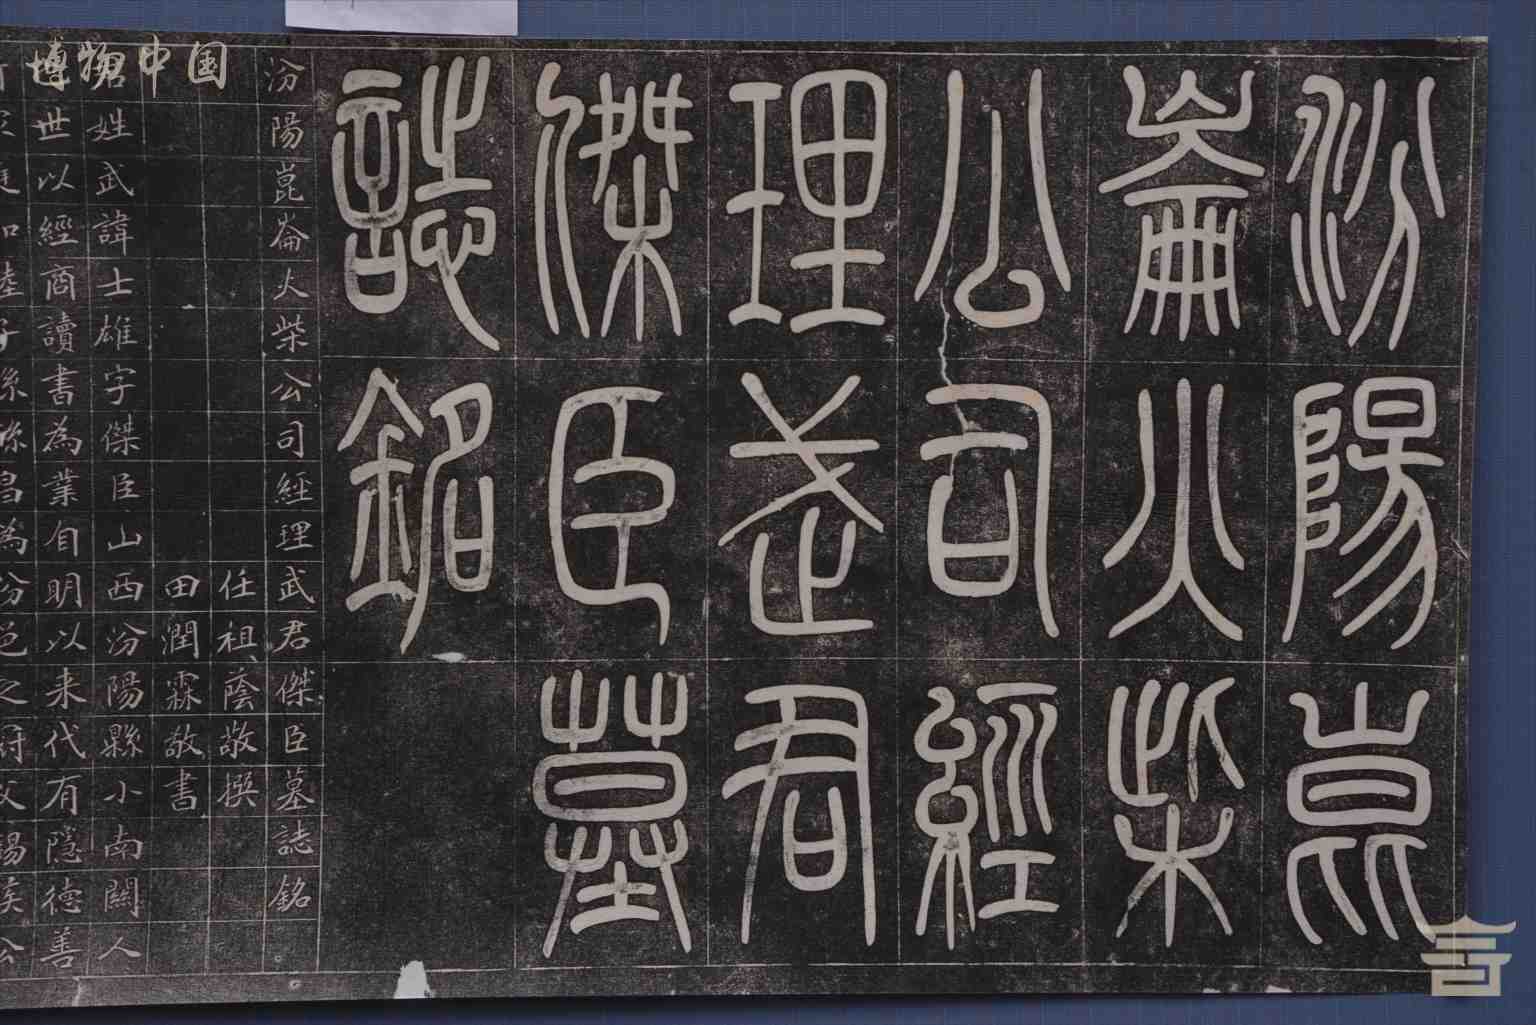 汾陽崑
崙火柴
公司經
理武君
傑臣墓
誌銘
汾陽崑崙火柴公司經理武君傑臣墓誌銘
任祖蔭敬撰
田潤霖敬書
姓武諱士雄字傑臣山西汾陽縣小南關人
世以經商讀書為業自明以来代有隱德善
博物中国